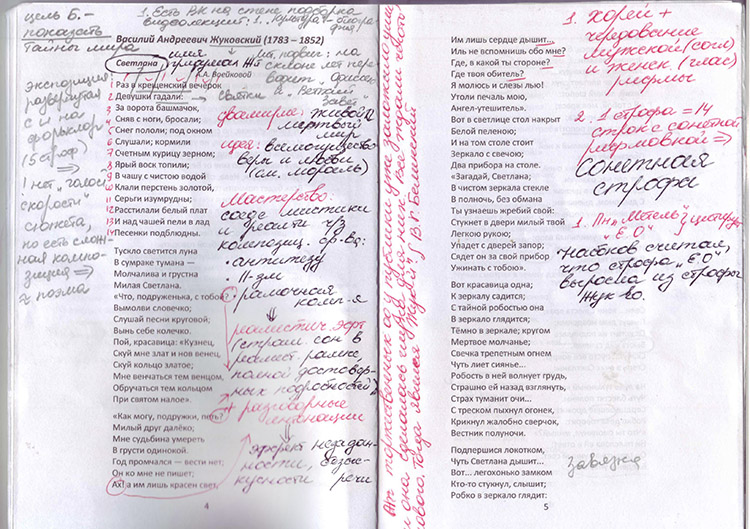 цель Б. –
показать
тайны мира
1. Есть РК на стене подборка
видеолекций: 1.
Василий Андреевич Жуковский (1783 – 1852)
Светлана
имя
придумал Ж
на
склоне лет пере-
А.А. Воейковой
святки и "Ветхий
Завет"
экспозиция
развернутая
и на
фольклор
(5 строф)
1 нет "голой
скорости"
сюжета,
но есть слож-
ная компо-
зиция =>
≈ поэма
1 Раз в крещенский вечерок
2 Девушки гадали:
3 За ворота башмачок,
4 Сняв с ноги, бросали;
5 Снег пололи; под окном
6 Слушали; кормили
7 Счетным курицу зерном;
8 Ярый воск топили;
9 В чашу с чистою водой
10 Клали перстень золотой,
11 Серьги изумрудны;
12 Расстилали белый плат
13 И над чашей пели в лад
14 Песенки подблюдны.
двоемирие: живой
мертвый
мир
идея: всемогущество
веры и любви
(см. мораль)
Мастерство:
соед. мистики
и реальн. ч/з
композиц. ср-ва:
• антитезу
• II-зм
• рамочная
комп-я
Тускло светится луна
В сумраке тумана —
Молчалива и грустна
Милая Светлана.
«Что, подруженька, с тобой?
Вымолви словечко;
Слушай песни круговой;
Вынь себе колечко.
Пой, красавица: «Кузнец,
Скуй мне злат и нов венец,
Скуй кольцо златое;
Мне венчаться тем венцом,
Обручаться тем кольцом
При святом налое».
реалистич. эфф.
(страшн. сон в
реалист. рамке,
полной достовер-
ных подробностей)
+ разговорные
интонации
«Как могу, подружки, петь?
Милый друг далёко;
Мне судьбина умереть
В грусти одинокой.
Год промчался — вести нет;
Он ко мне не пишет;
Ах! а им лишь красен свет,
эффект незадан-
ности, безыс-
кусности речи
4
В.Г. Белинский
Им лишь сердце дышит...
Иль не вспомнишь обо мне?
Где, в какой ты стороне?
Где твоя обитель?
Я молюсь и слезы лью!
Утоли печаль мою,
Ангел-утешитель».
Вот в светлице стол накрыт
Белой пеленою;
И на том столе стоит
Зеркало с свечою;
Два прибора на столе.
«Загадай, Светлана;
В чистом зеркала стекле
В полночь, без обмана
Ты узнаешь жребий свой:
Стукнет в двери милый твой
Легкою рукою;
Упадет с дверей запор;
Сядет он за свой прибор
Ужинать с тобою».
Вот красавица одна;
К зеркалу садится;
С тайной робостью она
В зеркало глядится;
Тёмно в зеркале; кругом
Мертвое молчанье;
Свечка трепетным огнем
Чуть лиет сиянье...
Робость в ней волнует грудь,
Страшно ей назад взглянуть,
Страх туманит очи...
С треском пыхнул огонек,
Крикнул жалобно сверчок,
Вестник полуночи.
Подпершися локотком,
Чуть Светлана дышит...
Вот... легохонько замком
Кто-то стукнул, слышит;
Робко в зеркало глядит:
5
1. хорей +
чередование
мужской (согл)
и женск. (глас)
рифмы
2. 1 строфа = 14
строк с сонетной
рифмовкой =>
Сонетная
строфа
1. Пн "Метель" цитирует
"ЕО"
Набоков считал,
что строфа "ЕО"
выросла из строфы
Жук-во.
завязка